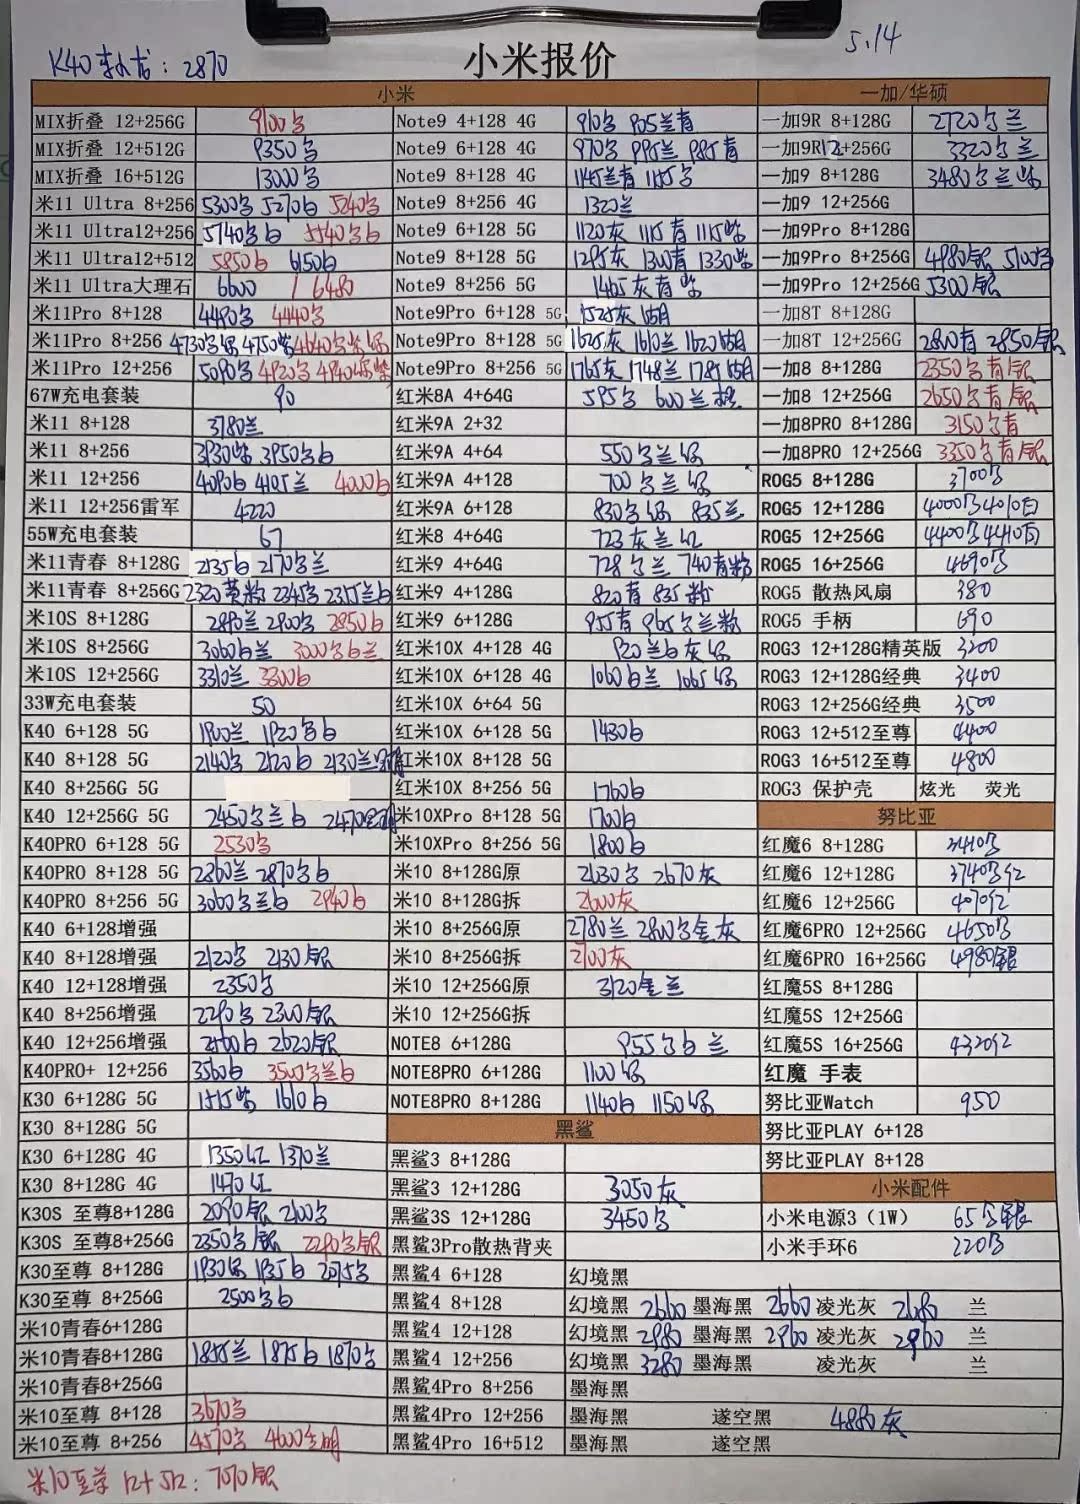 5.14
K40 : 2870
小米报价
小米
一加/华硕
MIX折叠 12+256G 9100 Note9 4+128 4G 910 905兰青 一加9R 8+128G 2720 兰
MIX折叠 12+512G 9350 Note9 6+128 4G 970 995兰 985青 一加9R12+256G 3320 兰
MIX折叠 16+512G 13000 Note9 8+128 4G 1145兰青 一加9 8+128G 3480 兰紫
米11 Ultra 8+256 5300 5270白 5240 Note9 8+256 4G 1320兰 一加9 12+256G
米11 Ultra12+256 5740 白 白 Note9 6+128 5G 1120灰 1115青 1115紫 一加9Pro 8+128G
米11 Ultra12+512 5850白 6150白 Note9 8+128 5G 1295灰 1300青 1330紫 一加9Pro 8+256G 4980银 5100
米11 Ultra大理石 6600 / 6480 Note9 8+256 5G 1465灰青紫 一加9Pro 12+256G 5300银
米11Pro 8+128 4490 4440 Note9Pro 6+128 5G 1525灰 一加8T 8+128G
米11Pro 8+256 4730 绿 4750紫 4640 Note9Pro 8+128 5G 1625灰 1610兰 1620 一加8T 12+256G 2800青 2850银
米11Pro 12+256 5090 4920 4940 Note9Pro 8+256 5G 1765灰 1748兰 1785 一加8 8+128G 2350 青银
67W充电套装 90 红米8A 4+64G 595 600兰 一加8 12+256G 2650 青银
米11 8+128 3780兰 红米9A 2+32 一加8PRO 8+128G 3150 青
米11 8+256 3930紫 3950 白 红米9A 4+64 550 兰绿 一加8PRO 12+256G 3350 青银
米11 12+256 4090白 4105兰 4000白 红米9A 4+128 700 兰绿 ROG5 8+128G 3700
米11 12+256雷军 4220 红米9A 6+128 830 绿 835兰 ROG5 12+128G 4000 4010白
55W充电套装 67 红米8 4+64G 723灰兰红 ROG5 12+256G 4400 4410白
米11青春 8+128G 2135白 2170 兰 红米9 4+64G 728 兰 740青粉 ROG5 16+256G 4690
米11青春 8+256G 2320黄粉 2345 2315兰白 红米9 4+128G 820青 835粉 ROG5 散热风扇 380
米10S 8+128G 2890兰 2900 2850白 红米9 6+128G 955青 965 兰粉 ROG5 手柄 690
米10S 8+256G 3060白兰 3000 白兰 红米10X 4+128 4G 920兰白灰绿 ROG3 12+128G精英版 3200
米10S 12+256G 3310兰 3300白 红米10X 6+128 4G 1060白兰 1065绿 ROG3 12+128G经典 3400
33W充电套装 50 红米10X 6+64 5G ROG3 12+256G经典 3500
K40 6+128 5G 1900兰 1920 白 红米10X 6+128 5G 1430白 ROG3 12+512至尊 4400
K40 8+128 5G 2140 2120白 2130兰 红米10X 8+128 5G ROG3 16+512至尊 4800
K40 8+256G 5G 红米10X 8+256 5G 1760白 ROG3 保护壳 炫光 荧光
K40 12+256G 5G 2450 兰白 2470 米10XPro 8+128 5G 1700白 努比亚
K40PRO 6+128 5G 2530 米10XPro 8+256 5G 1800白 红魔6 8+128G 3410
K40PRO 8+128 5G 2860兰 2870 白 米10 8+128G原 2630 2670灰 红魔6 12+128G 3740 红
K40PRO 8+256 5G 3060 兰白 2940白 米10 8+128G拆 2600灰 红魔6 12+256G 4070红
K40 6+128增强 米10 8+256G原 2780兰 2800 金灰 红魔6PRO 12+256G 4650
K40 8+128增强 2120 2130银 米10 8+256G拆 2700灰 红魔6PRO 16+256G 4980银
K40 12+128增强 2350 米10 12+256G原 3120金兰 红魔5S 8+128G
K40 8+256增强 2290 2300银 米10 12+256G拆 红魔5S 12+256G
K40 12+256增强 2560白 2620银 NOTE8 6+128G 955 白兰 红魔5S 16+256G 4320红
K40PRO+ 12+256 3560白 3505 兰白 NOTE8PRO 6+128G 1100绿 红魔 手表
K30 6+128G 5G 1515紫 1610白 NOTE8PRO 8+128G 1140白 1150绿 努比亚Watch 950
K30 8+128G 5G 黑鲨 努比亚PLAY 6+128
K30 6+128G 4G 1350红 1370兰 黑鲨3 8+128G 努比亚PLAY 8+128
K30 8+128G 4G 1470红 黑鲨3 12+128G 3050灰 小米配件
K30S 至尊8+128G 2090银 2100 黑鲨3S 12+128G 3450 小米电源3（1W） 65 银
K30S 至尊8+256G 2350 银 2290 银 黑鲨3Pro散热背夹 小米手环6 220
K30至尊 8+128G 1930绿 1935白 2075 黑鲨4 6+128 幻境黑
K30至尊 8+256G 2500 白 黑鲨4 8+128 幻境黑 2660 墨海黑 2660 凌光灰 2680 兰
米10青春6+128G 黑鲨4 12+128 幻境黑 2980 墨海黑 2960 凌光灰 2960 兰
米10青春8+128G 1855兰 1875白 1870 黑鲨4 12+256 幻境黑 3280 墨海黑 凌光灰 兰
米10青春8+256G 黑鲨4Pro 8+256 墨海黑
米10至尊 8+128 3670 黑鲨4Pro 12+256 墨海黑 遂空黑 4880灰
米10至尊 8+256 4570 4600透明 黑鲨4Pro 16+512 墨海黑 遂空黑
米10至尊 12+512: 7070银